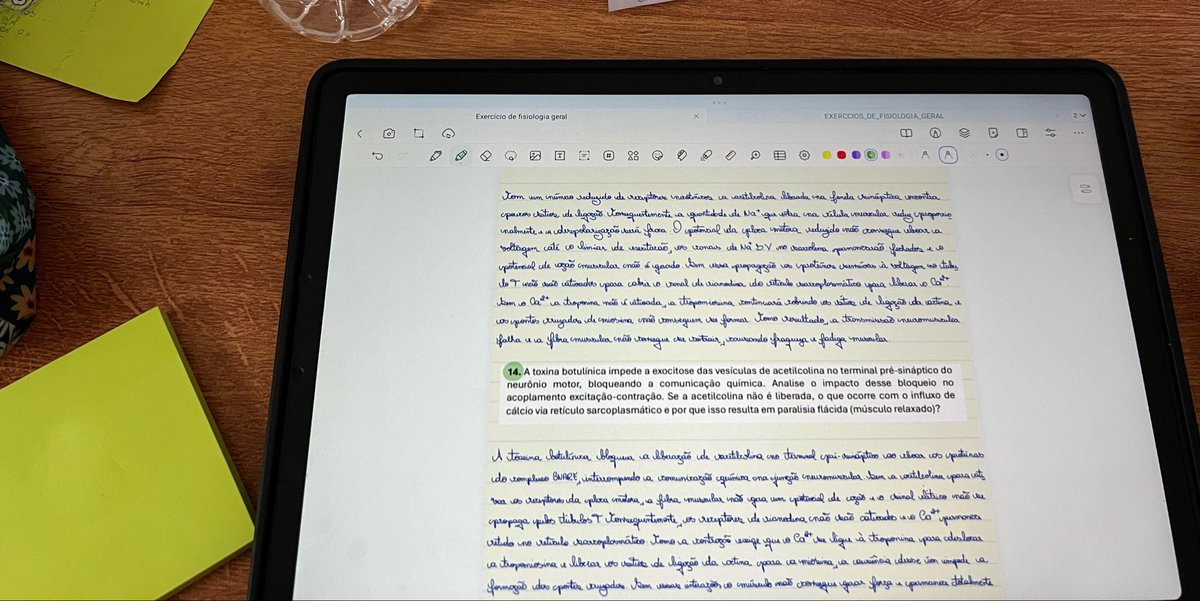 Exercício de fisiologia geral
EXERCCIOS_DE_FISIOLOGIA_GERAL
2
Com um número reduzido de receptores nicotínicos a acetilcolina liberada na fenda sináptica encontra
poucos sítios de ligação. Consequentemente a quantidade de Na⁺ que entra na célula muscular reduz proporcio
nalmente e a despolarização será fraca. O potencial da placa motora reduzido não consegue elevar a
voltagem até o limiar de excitação, os canais de Na DV no sarcolema permanecerão fechados e o
potencial de ação muscular não é gerado. Sem essa propagação as proteínas sensíveis à voltagem nos túbu
lo T não são ativadas para abrir o canal de rianodina do retículo sarcoplasmático para liberar o Ca²⁺
Sem o Ca²⁺ a troponina não é ativada, a tropomiosina continuará cobrindo os sítios de ligação da actina e
as pontes cruzadas de miosina não conseguem se formar. Como resultado, a transmissão neuromuscular
falha e a fibra muscular não consegue se contrair, causando fraqueza e fadiga muscular.
14. A toxina botulínica impede a exocitose das vesículas de acetilcolina no terminal pré-sináptico do
neurônio motor, bloqueando a comunicação química. Analise o impacto desse bloqueio no
acoplamento excitação-contração. Se a acetilcolina não é liberada, o que ocorre com o influxo de
cálcio via retículo sarcoplasmático e por que isso resulta em paralisia flácida (músculo relaxado)?
A toxina botulínica bloqueia a liberação de acetilcolina no terminal pré-sináptico ao clivar as proteínas
do complexo SNARE, interrompendo a comunicação química na junção neuromuscular. Sem a acetilcolina para ati
var os receptores da placa motora, a fibra muscular não gera um potencial de ação e o sinal elétrico não se
propaga pelos túbulos T. Consequentemente, os receptores de rianodina não são ativados e o Ca²⁺ permanece
retido no retículo sarcoplasmático. Como a contração exige que o Ca²⁺ se ligue à troponina para deslocar
a tropomiosina e liberar os sítios de ligação da actina para a miosina, a ausência desse íon impede a
formação das pontes cruzadas. Sem essas interações o músculo não consegue gerar força e permanece totalmente